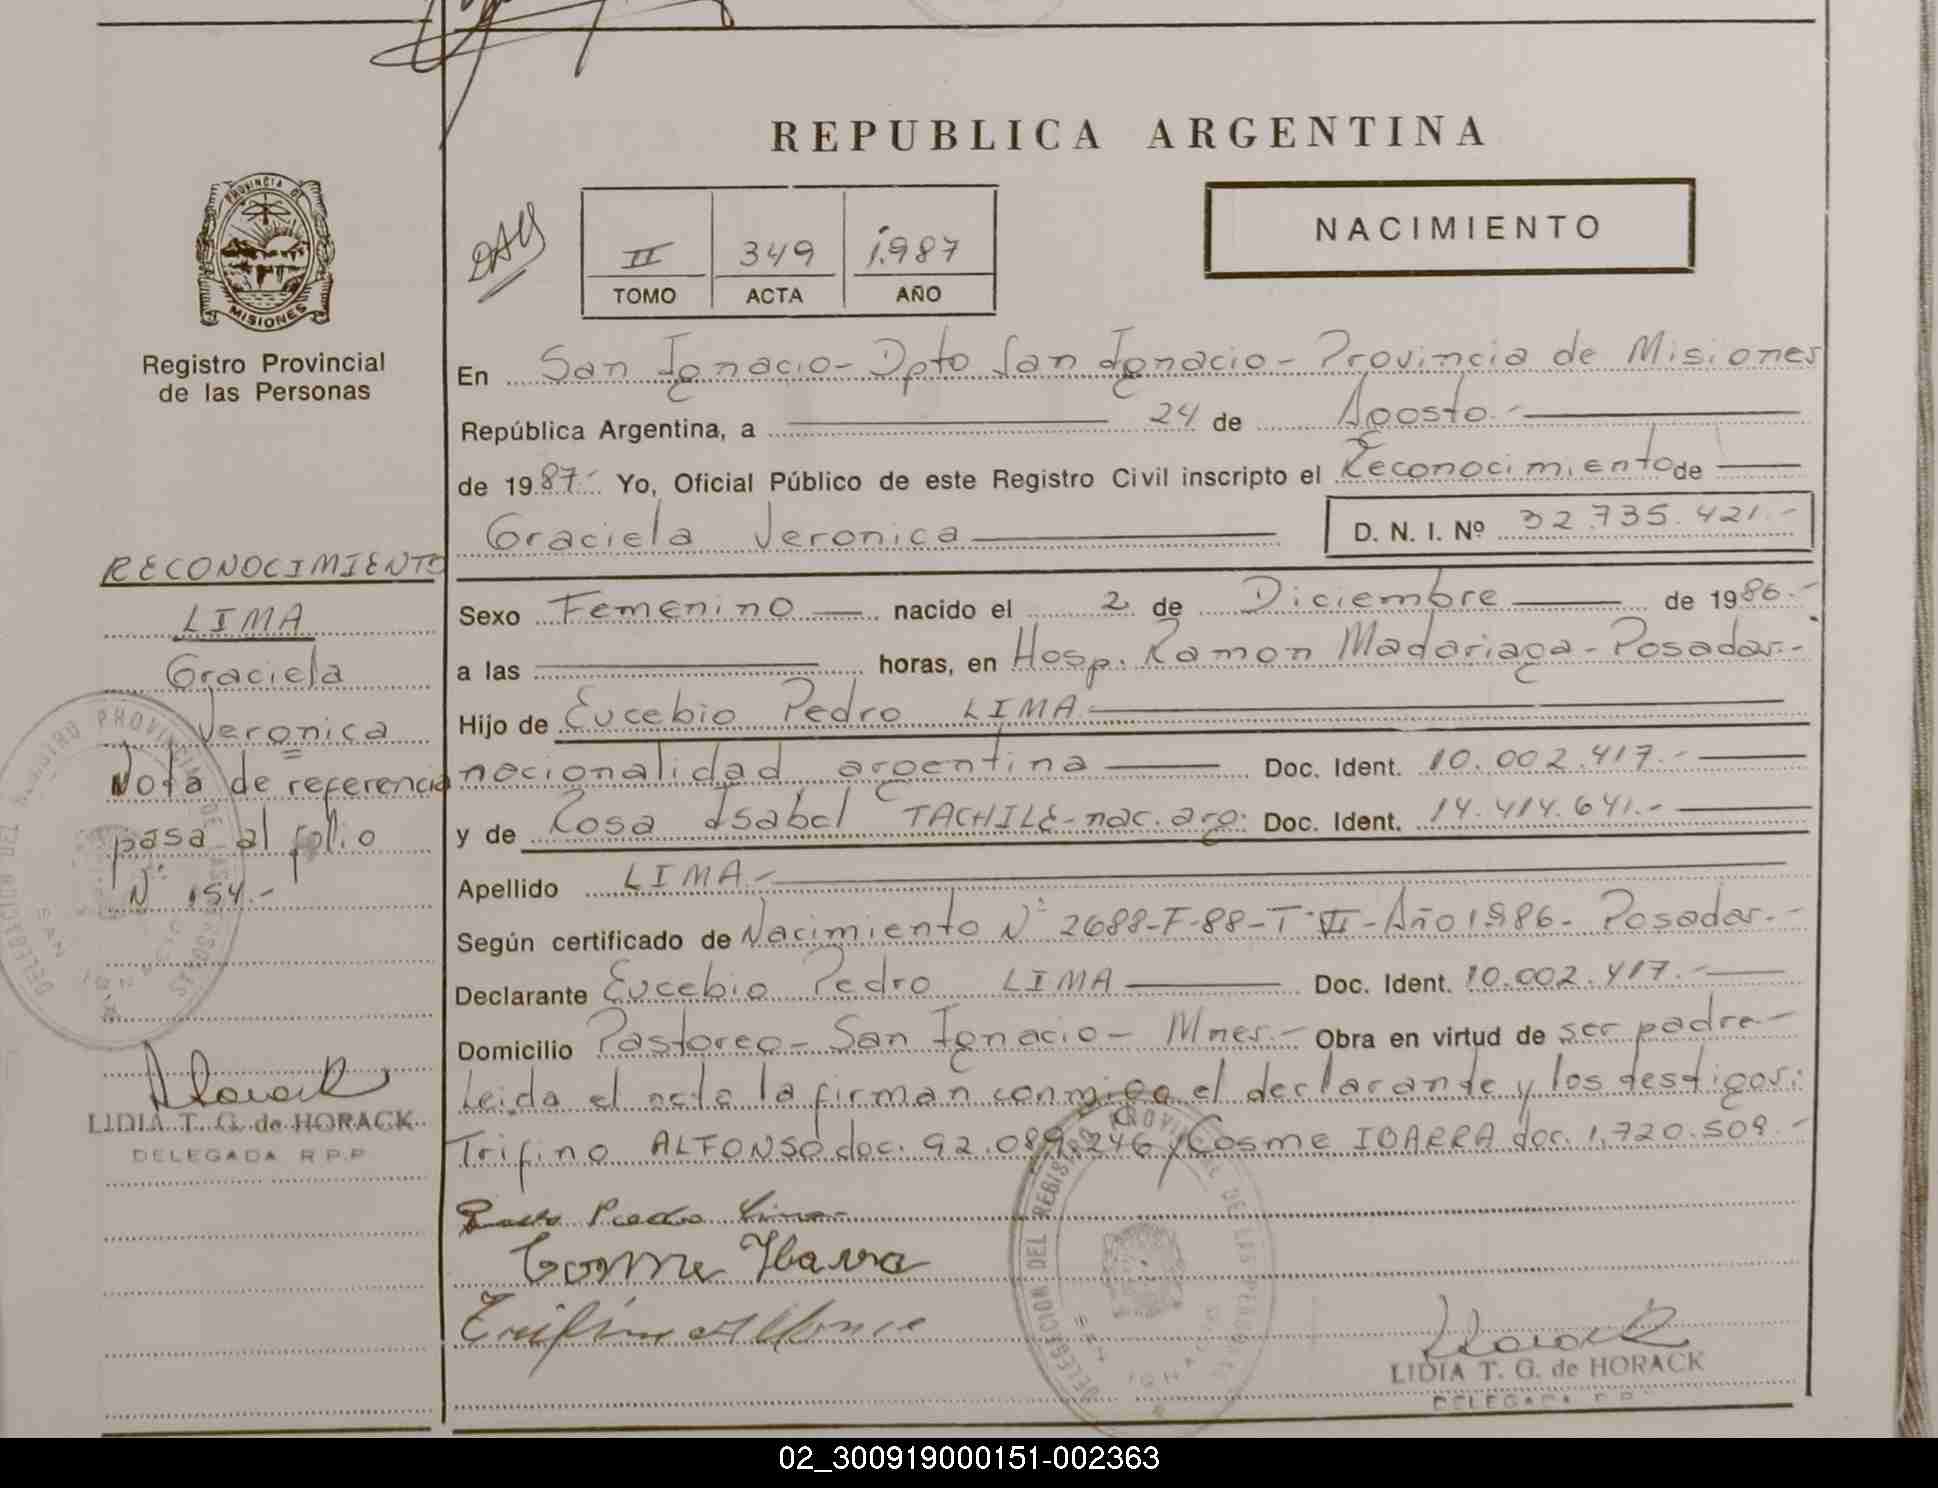 REPUBLICA ARGENTINA
NACIMIENTO
II 349 1.987
TOMO ACTA AÑO
PROVINCIA DE
MISIONES
Registro Provincial
de las Personas
En San Ignacio - Dpto San Ignacio - Provincia de Misiones
República Argentina, a 24 de Agosto.-
de 1987.- Yo, Oficial Público de este Registro Civil inscripto el Reconocimiento de
Graciela Veronica D. N. I. Nº 32.735.421.-
Sexo Femenino nacido el 2 de Diciembre de 1986.-
a las horas, en Hosp. Ramon Madariaga - Posadas.-
Hijo de Eucebio Pedro LIMA
nacionalidad argentina Doc. Ident. 10.002.417.-
y de Rosa Isabel TACHILE - nac. arg. Doc. Ident. 14.414.641.-
Apellido LIMA.-
Según certificado de Nacimiento Nº 2688-F-88-T-VI-Año 1986- Posadas.-
Declarante Eucebio Pedro LIMA Doc. Ident. 10.002.417.-
Domicilio Pastoreo - San Ignacio - Mnes.- Obra en virtud de ser padre-
Leida el acta la firman conmigo el declarante y los testigos:
Trifino ALFONSO doc. 92.089.246 y Cosme IBARRA doc. 1.720.509.-
Pedro Lima
Cosme Ibarra
Trifino Alfonso
DELEGACION DEL REGISTRO PROVINCIAL DE LAS PERSONAS
SAN IGNACIO
Horack
LIDIA T. G. de HORACK
DELEGADA R.P.P.
RECONOCIMIENTO
LIMA
Graciela
Veronica
Nota de referencia
pasa al folio
Nº 154.-
DELEGACION DEL REGISTRO PROVINCIAL DE LAS PERSONAS
SAN IGNACIO
Horack
LIDIA T. G. de HORACK
DELEGADA R.P.P.
02_300919000151-002363